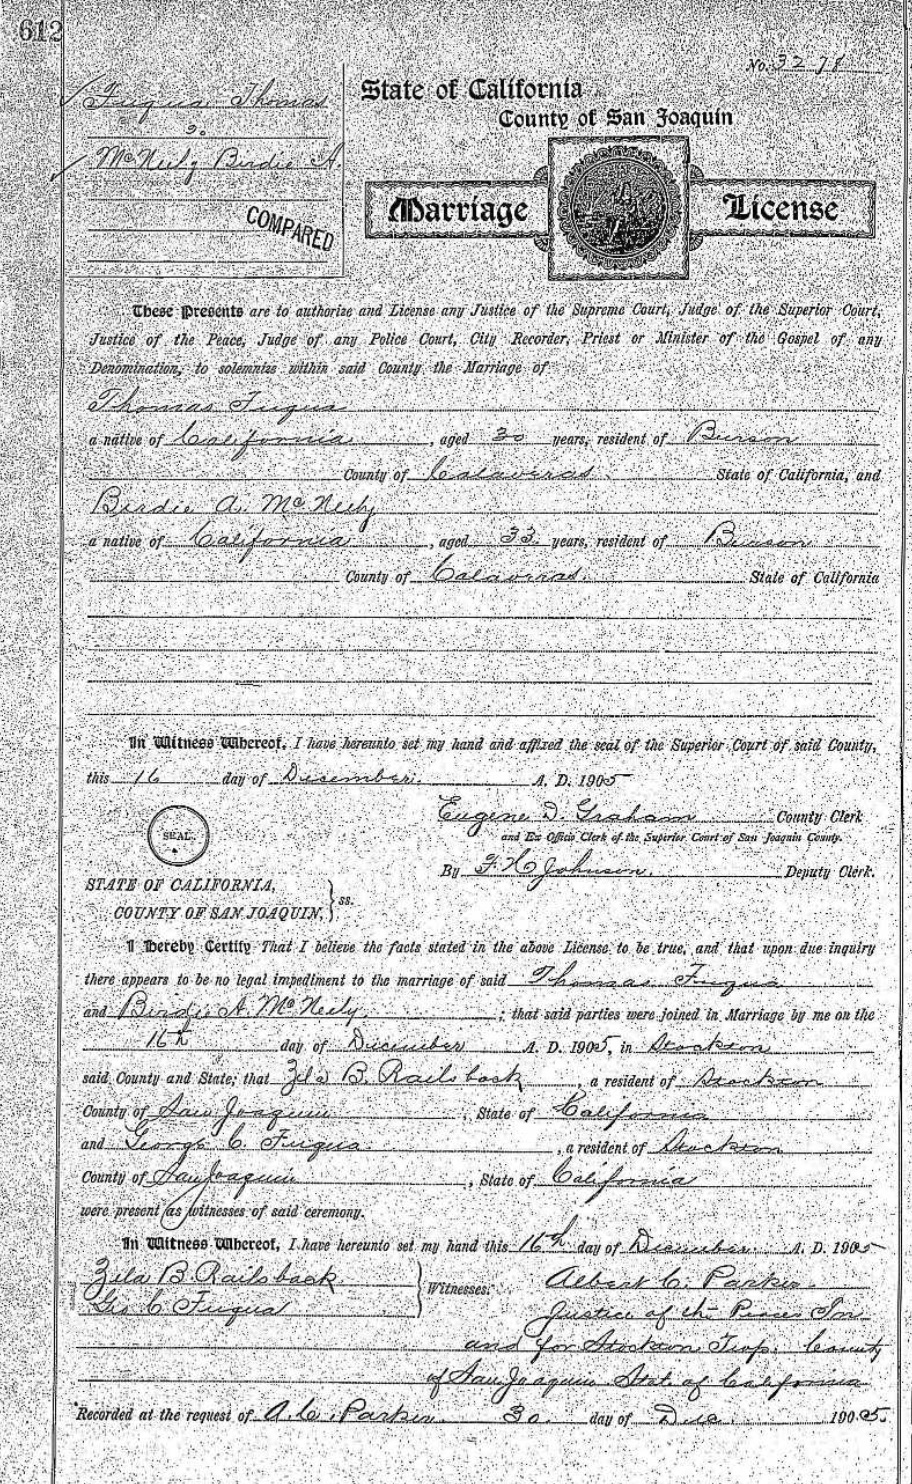 612
No. 3278
Fuqua Thomas
&
McNeely Birdie A.
COMPARED
State of California
County of San Joaquin
Marriage License
These Presents are to authorize and License any Justice of the Supreme Court, Judge of the Superior Court,
Justice of the Peace, Judge of any Police Court, City Recorder, Priest or Minister of the Gospel of any
Denomination, to solemnize within said County the Marriage of
Thomas Fuqua
a native of California, aged 30 years, resident of Burson
County of Calaveras State of California, and
Birdie A. McNeely
a native of California, aged 33 years, resident of Burson
County of Calaveras State of California
In Witness Whereof, I have hereunto set my hand and affixed the seal of the Superior Court of said County,
this 16 day of December A. D. 1905
Eugene D. Graham County Clerk
and Ex Officio Clerk of the Superior Court of San Joaquin County.
SEAL.
By F. H. Johnson. Deputy Clerk.
STATE OF CALIFORNIA,
COUNTY OF SAN JOAQUIN, } ss.
I Hereby Certify That I believe the facts stated in the above License to be true, and that upon due inquiry
there appears to be no legal impediment to the marriage of said Thomas Fuqua
and Birdie A. McNeely; that said parties were joined in Marriage by me on the
16th day of December A. D. 1905, in Stockton
said County and State; that Zela B. Railsback, a resident of Stockton
County of San Joaquin, State of California
and George C. Fuqua, a resident of Stockton
County of San Joaquin, State of California
were present as witnesses of said ceremony.
In Witness Whereof, I have hereunto set my hand this 16th day of December A. D. 1905
Zela B. Railsback } Witnesses: Albert C. Parker
Geo C. Fuqua Justice of the Peace In
and for Stockton Twp. County
of San Joaquin State of California
Recorded at the request of A. C. Parker 30 day of Dec. 1905.